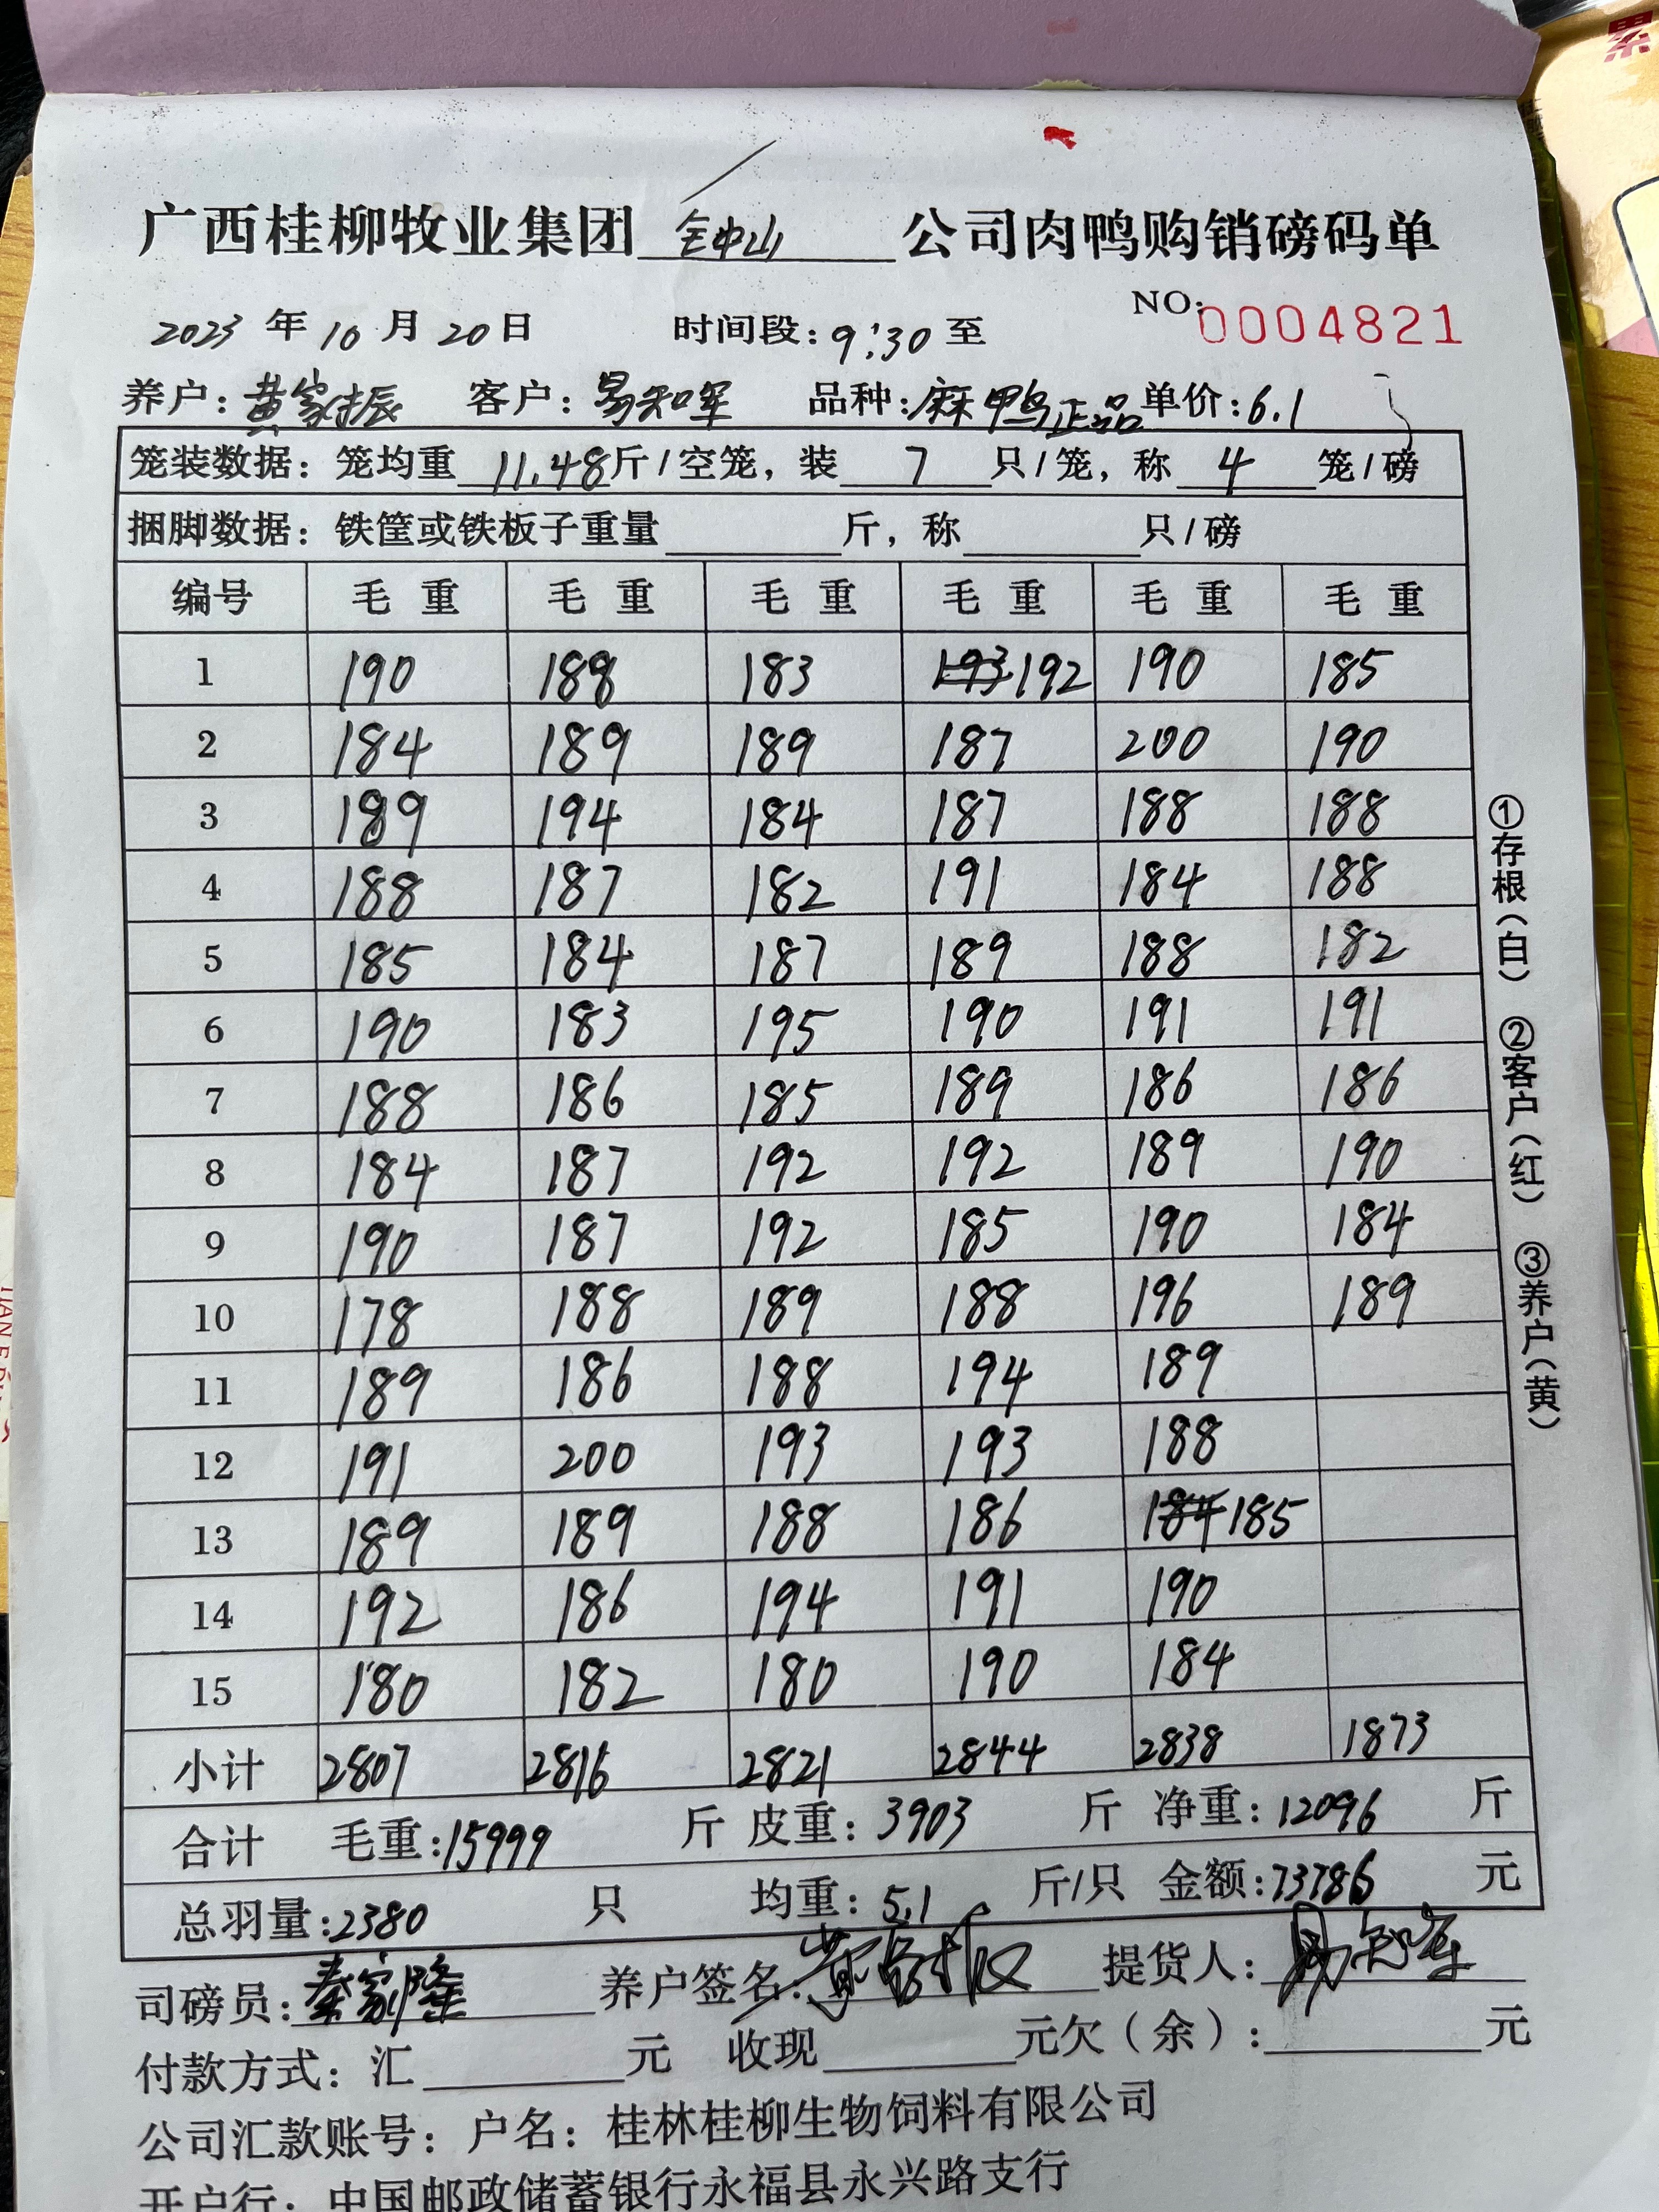 广西桂柳牧业集团 钟山 公司肉鸭购销磅码单
NO:0004821
2023 年 10 月 20 日 时间段: 9:30 至
养户: 黄家振 客户: 易知军 品种: 麻鸭正品 单价: 6.1
笼装数据: 笼均重 11.48 斤/空笼, 装 7 只/笼, 称 4 笼/磅
捆脚数据: 铁筐或铁板子重量 斤, 称 只/磅
编号 毛重 毛重 毛重 毛重 毛重 毛重
1 190 188 183 193 192 190 185
2 184 189 189 187 200 190
3 189 194 184 187 188 188
4 188 187 182 191 184 188
5 185 184 187 189 188 182
6 190 183 195 190 191 191
7 188 186 185 189 186 186
8 184 187 192 192 189 190
9 190 187 192 185 190 184
10 178 188 189 188 196 189
11 189 186 188 194 189
12 191 200 193 193 188
13 189 189 188 186 184 185
14 192 186 194 191 190
15 180 182 180 190 184
小计 2807 2816 2821 2844 2838 1873
合计 毛重: 15999 斤 皮重: 3903 斤 净重: 12096 斤
总羽量: 2380 只 均重: 5.1 斤/只 金额: 73786 元
司磅员: 秦家隆 养户签名: 黄家振 提货人: 易知军
付款方式: 汇 元 收现 元欠(余): 元
公司汇款账号: 户名: 桂林桂柳生物饲料有限公司
开户行: 中国邮政储蓄银行永福县永兴路支行
①存根(白) ②客户(红) ③养户(黄)